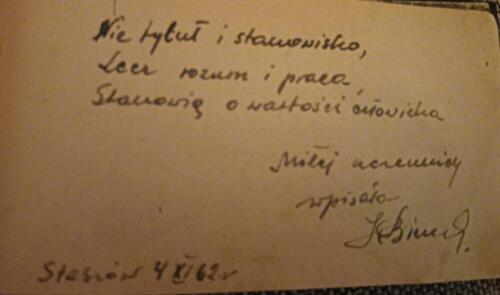 Nie tytuł i stanowisko,
Lecz rozum i praca,
Stanowią o wartości człowieka
Miłej uczennicy
wpisała
4 XI 62 r